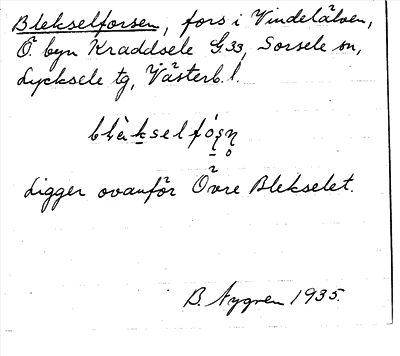 Blekselforsen, fors i Vindelälven,
Ö. byn Kraddsele G33, Sorsele sn,
Lycksele tg, Västerb. l.
Ligger ovanför Övre Blekselet.
B. Nygren 1935.